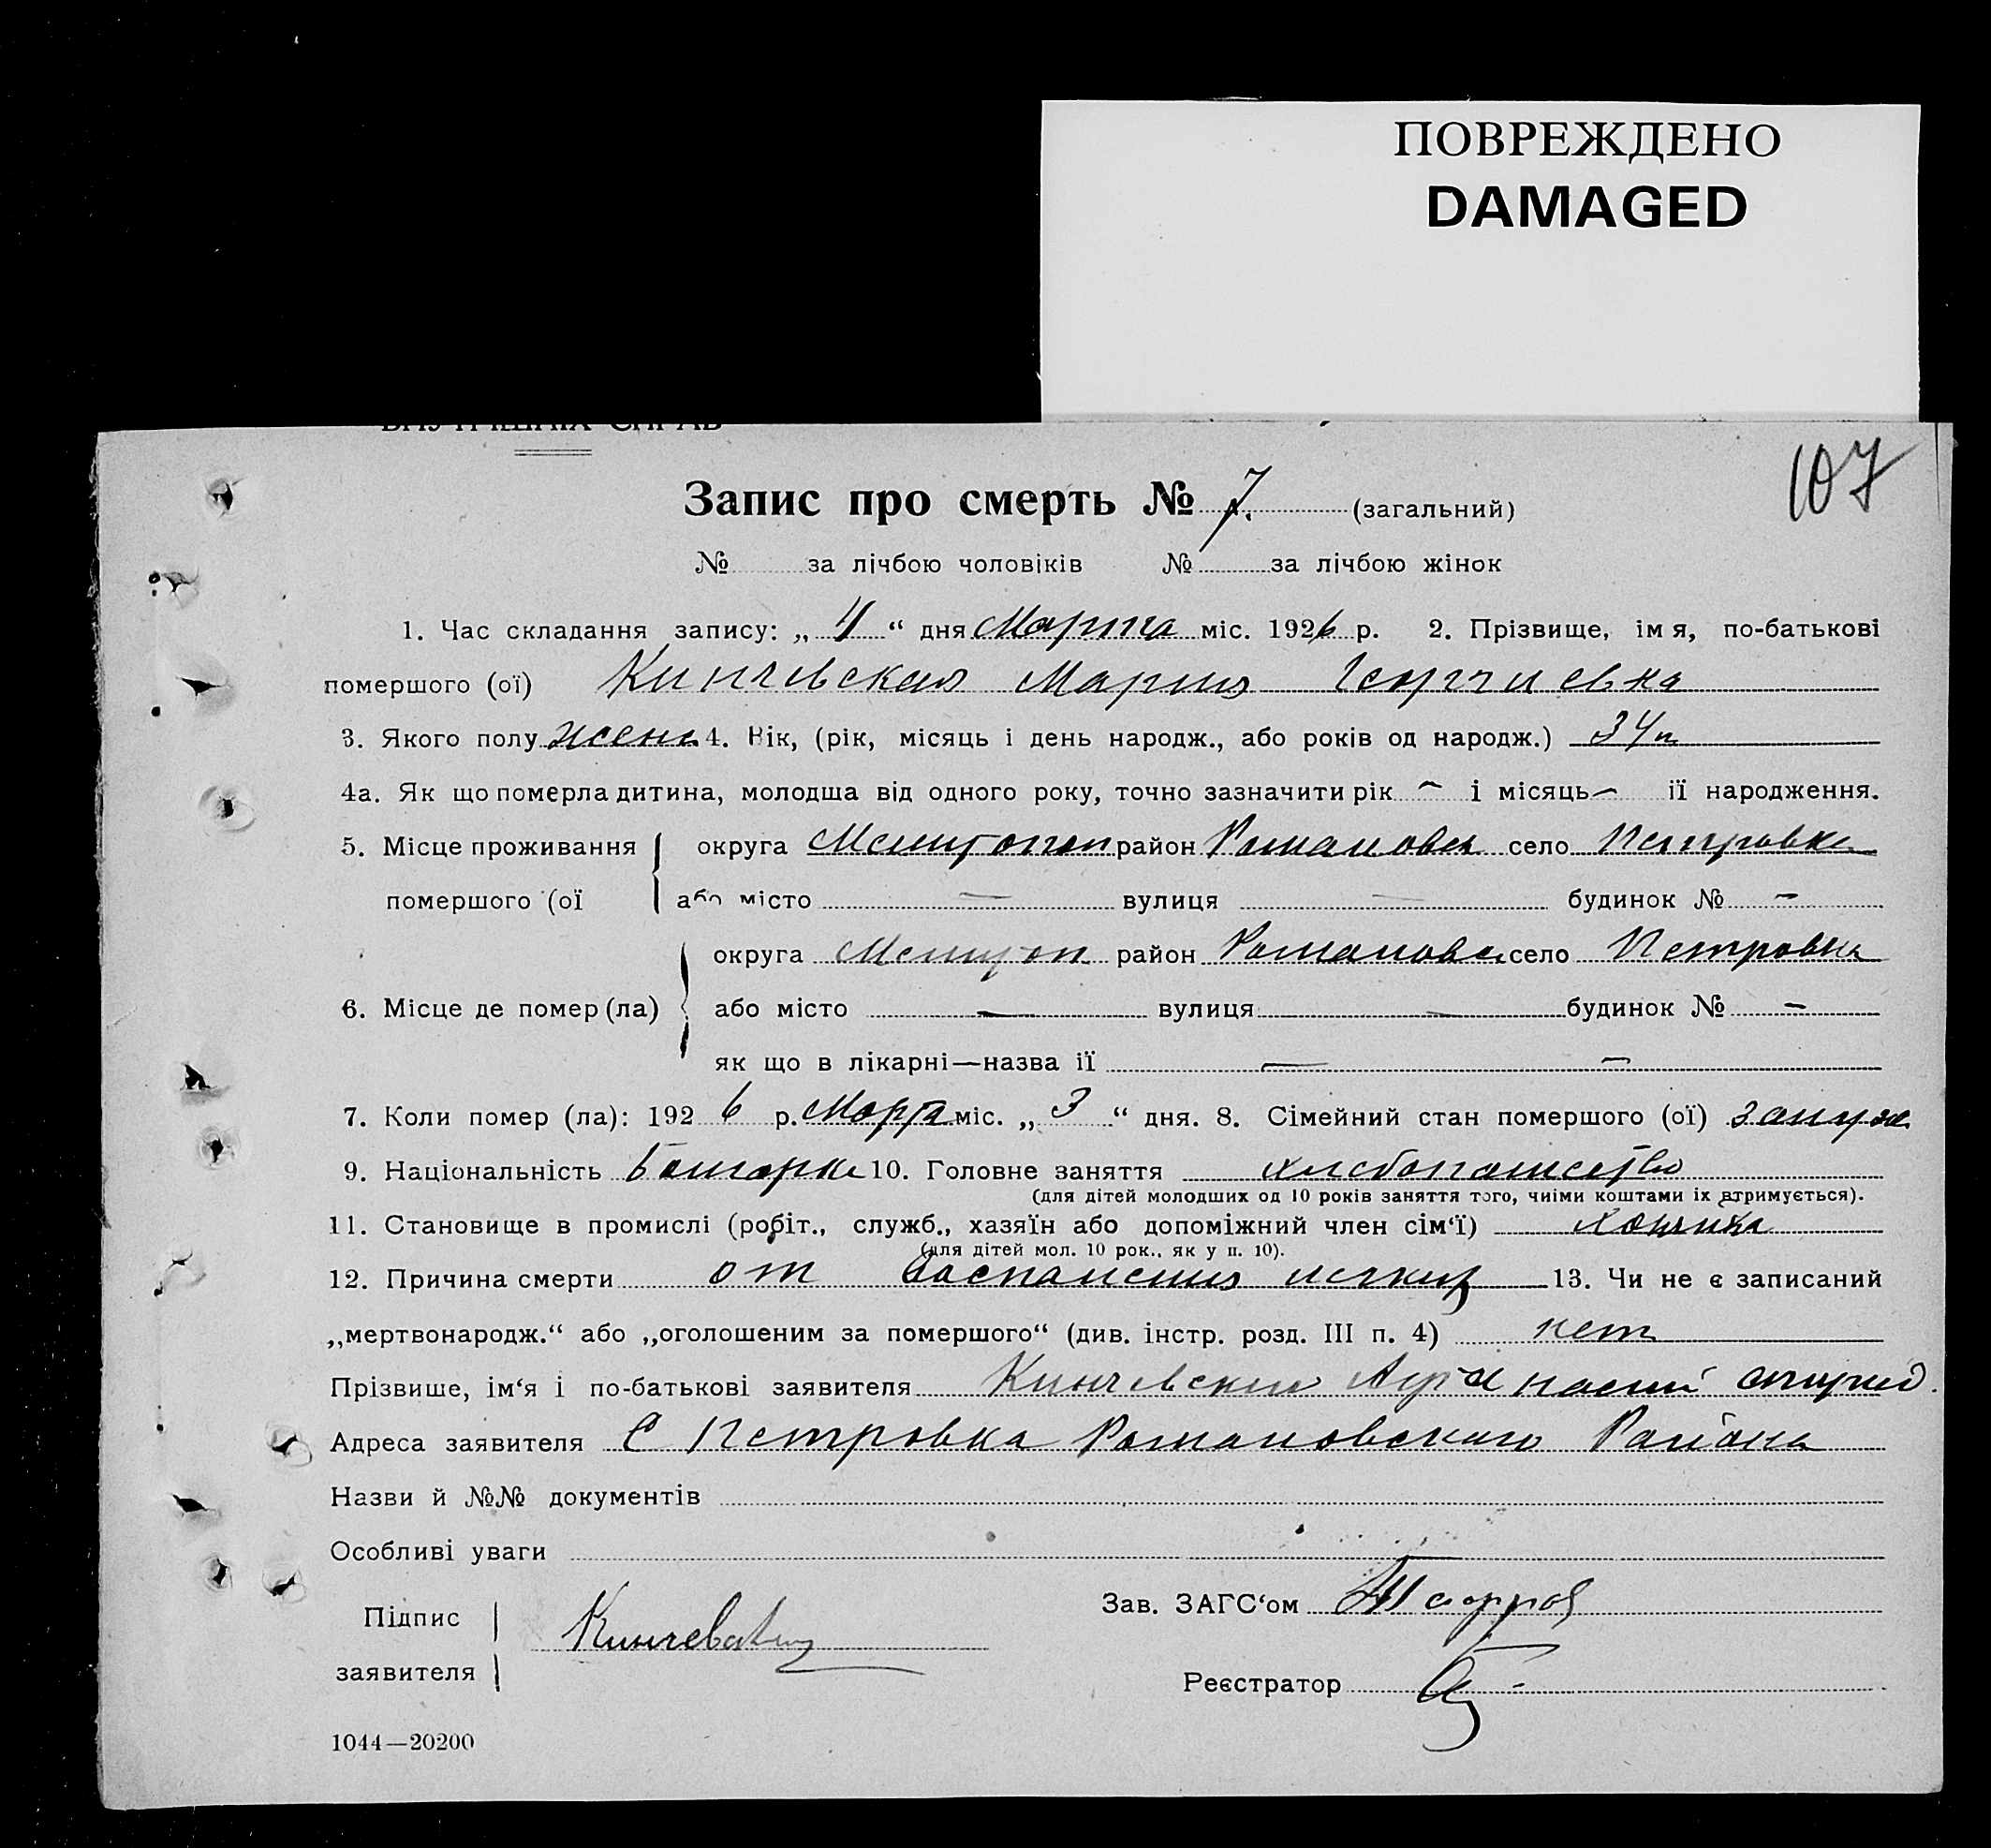 ПОВРЕЖДЕНО
DAMAGED
ВНУТРІШНІХ СПРАВ
107
Запис про смерть № 7. (загальний)
№ за лічбою чоловіків № за лічбою жінок
1. Час складання запису: „ 4 “ дня Марта міс. 1926 р. 2. Прізвище, ім я, по-батькові
помершого (ої) Кинчевская Мария Георгиевна
3. Якого полу жен. 4. Вік, (рік, місяць і день народж., або років од народж.) 34 л
4а. Як що померла дитина, молодша від одного року, точно зазначити рік – і місяць – її народження.
5. Місце проживання округа Мелитопол район Романовск село Петровка
помершого (ої або місто — вулиця — будинок № –
округа Мелитоп район Романовск село Петровка
6. Місце де помер (ла) або місто — вулиця — будинок № –
як що в лікарні—назва ії — –
7. Коли помер (ла): 1926 р. Марта міс. „ 3 “ дня. 8. Сімейний стан помершого (ої) замуж
9. Національність Болгарка 10. Головне заняття хлебопашество
(для дітей молодших од 10 років заняття того, чиїми коштами іх втримується).
11. Становище в промислі (робіт., служб., хазяїн або допоміжний член сім‘ї)
(для дітей мол. 10 рок., як у п. 10).
12. Причина смерти от воспаления легких 13. Чи не є записаний
„мертвонародж.“ або „оголошеним за помершого“ (див. інстр. розд. III п. 4) нет
Прізвише, ім‘я і по-батькові заявителя Кинчевский
Адреса заявителя С Петровка Романовского Района
Назви й №№ документів
Особливі уваги
Підпис заявителя Кинчевский
Зав. ЗАГС‘ом
Реєстратор
1044—20200